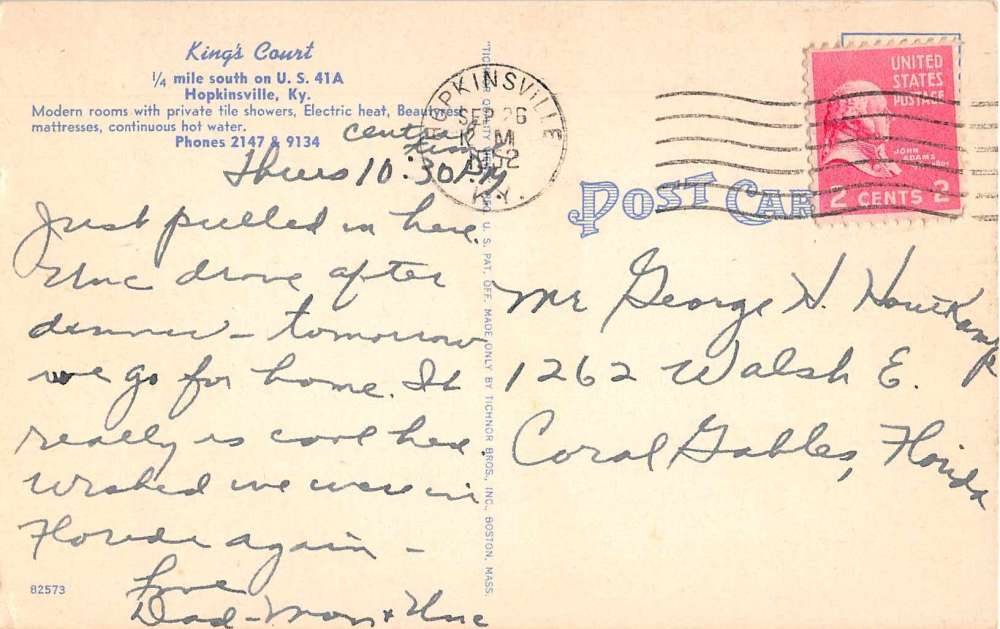 King's Court
1/4 mile south on U. S. 41A
Hopkinsville, Ky.
Modern rooms with private tile showers, Electric heat, Beautyrest
mattresses, continuous hot water.
Phones 2147 & 9134
central
time
Thurs 10:30 P.M.
Just pulled in here.
Unc drove after
dinner - tomorrow
we go for home. It
really is cool here.
Wished we were in
Florida again -
Love
Dad - Mom & Unc
82573
U. S. PAT. OFF. MADE ONLY BY TICHNOR BROS., INC., BOSTON, MASS.
HOPKINSVILLE
SEP 26
M
1952
KY.
UNITED
STATES
POSTAGE
JOHN
ADAMS
2 CENTS 2
POST CAR
Mr George H. Houtkamp
1262 Walsh E.
Coral Gables, Florida